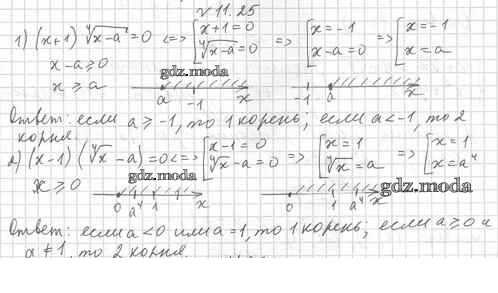 √ 11.25
1) (x+1) ⁴√(x-a) = 0 <=> [x+1=0 ⁴√(x-a)=0 => [x=-1 x-a=0 => [x=-1 x=a
x-a≥0
x≥a
gdz.moda
a -1 x -1 a x
Ответ: если a≥-1, то 1 корень; если a<-1, то 2
корня.
2) (x-1)(⁴√x-a)=0<=>[x-1=0 ⁴√x-a=0 => [x=1 ⁴√x=a => [x=1 x=a⁴
gdz.moda
x≥0
gdz.moda
0 a⁴ 1 x 0 1 a⁴ x
Ответ: если a<0 или a=1, то 1 корень; если a≥0 и
a≠1, то 2 корня.